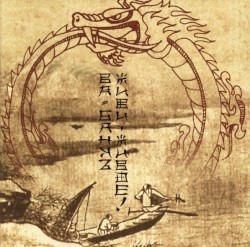 ВА-БАНКЪ
ЖИВИ ЖИВОЕ!